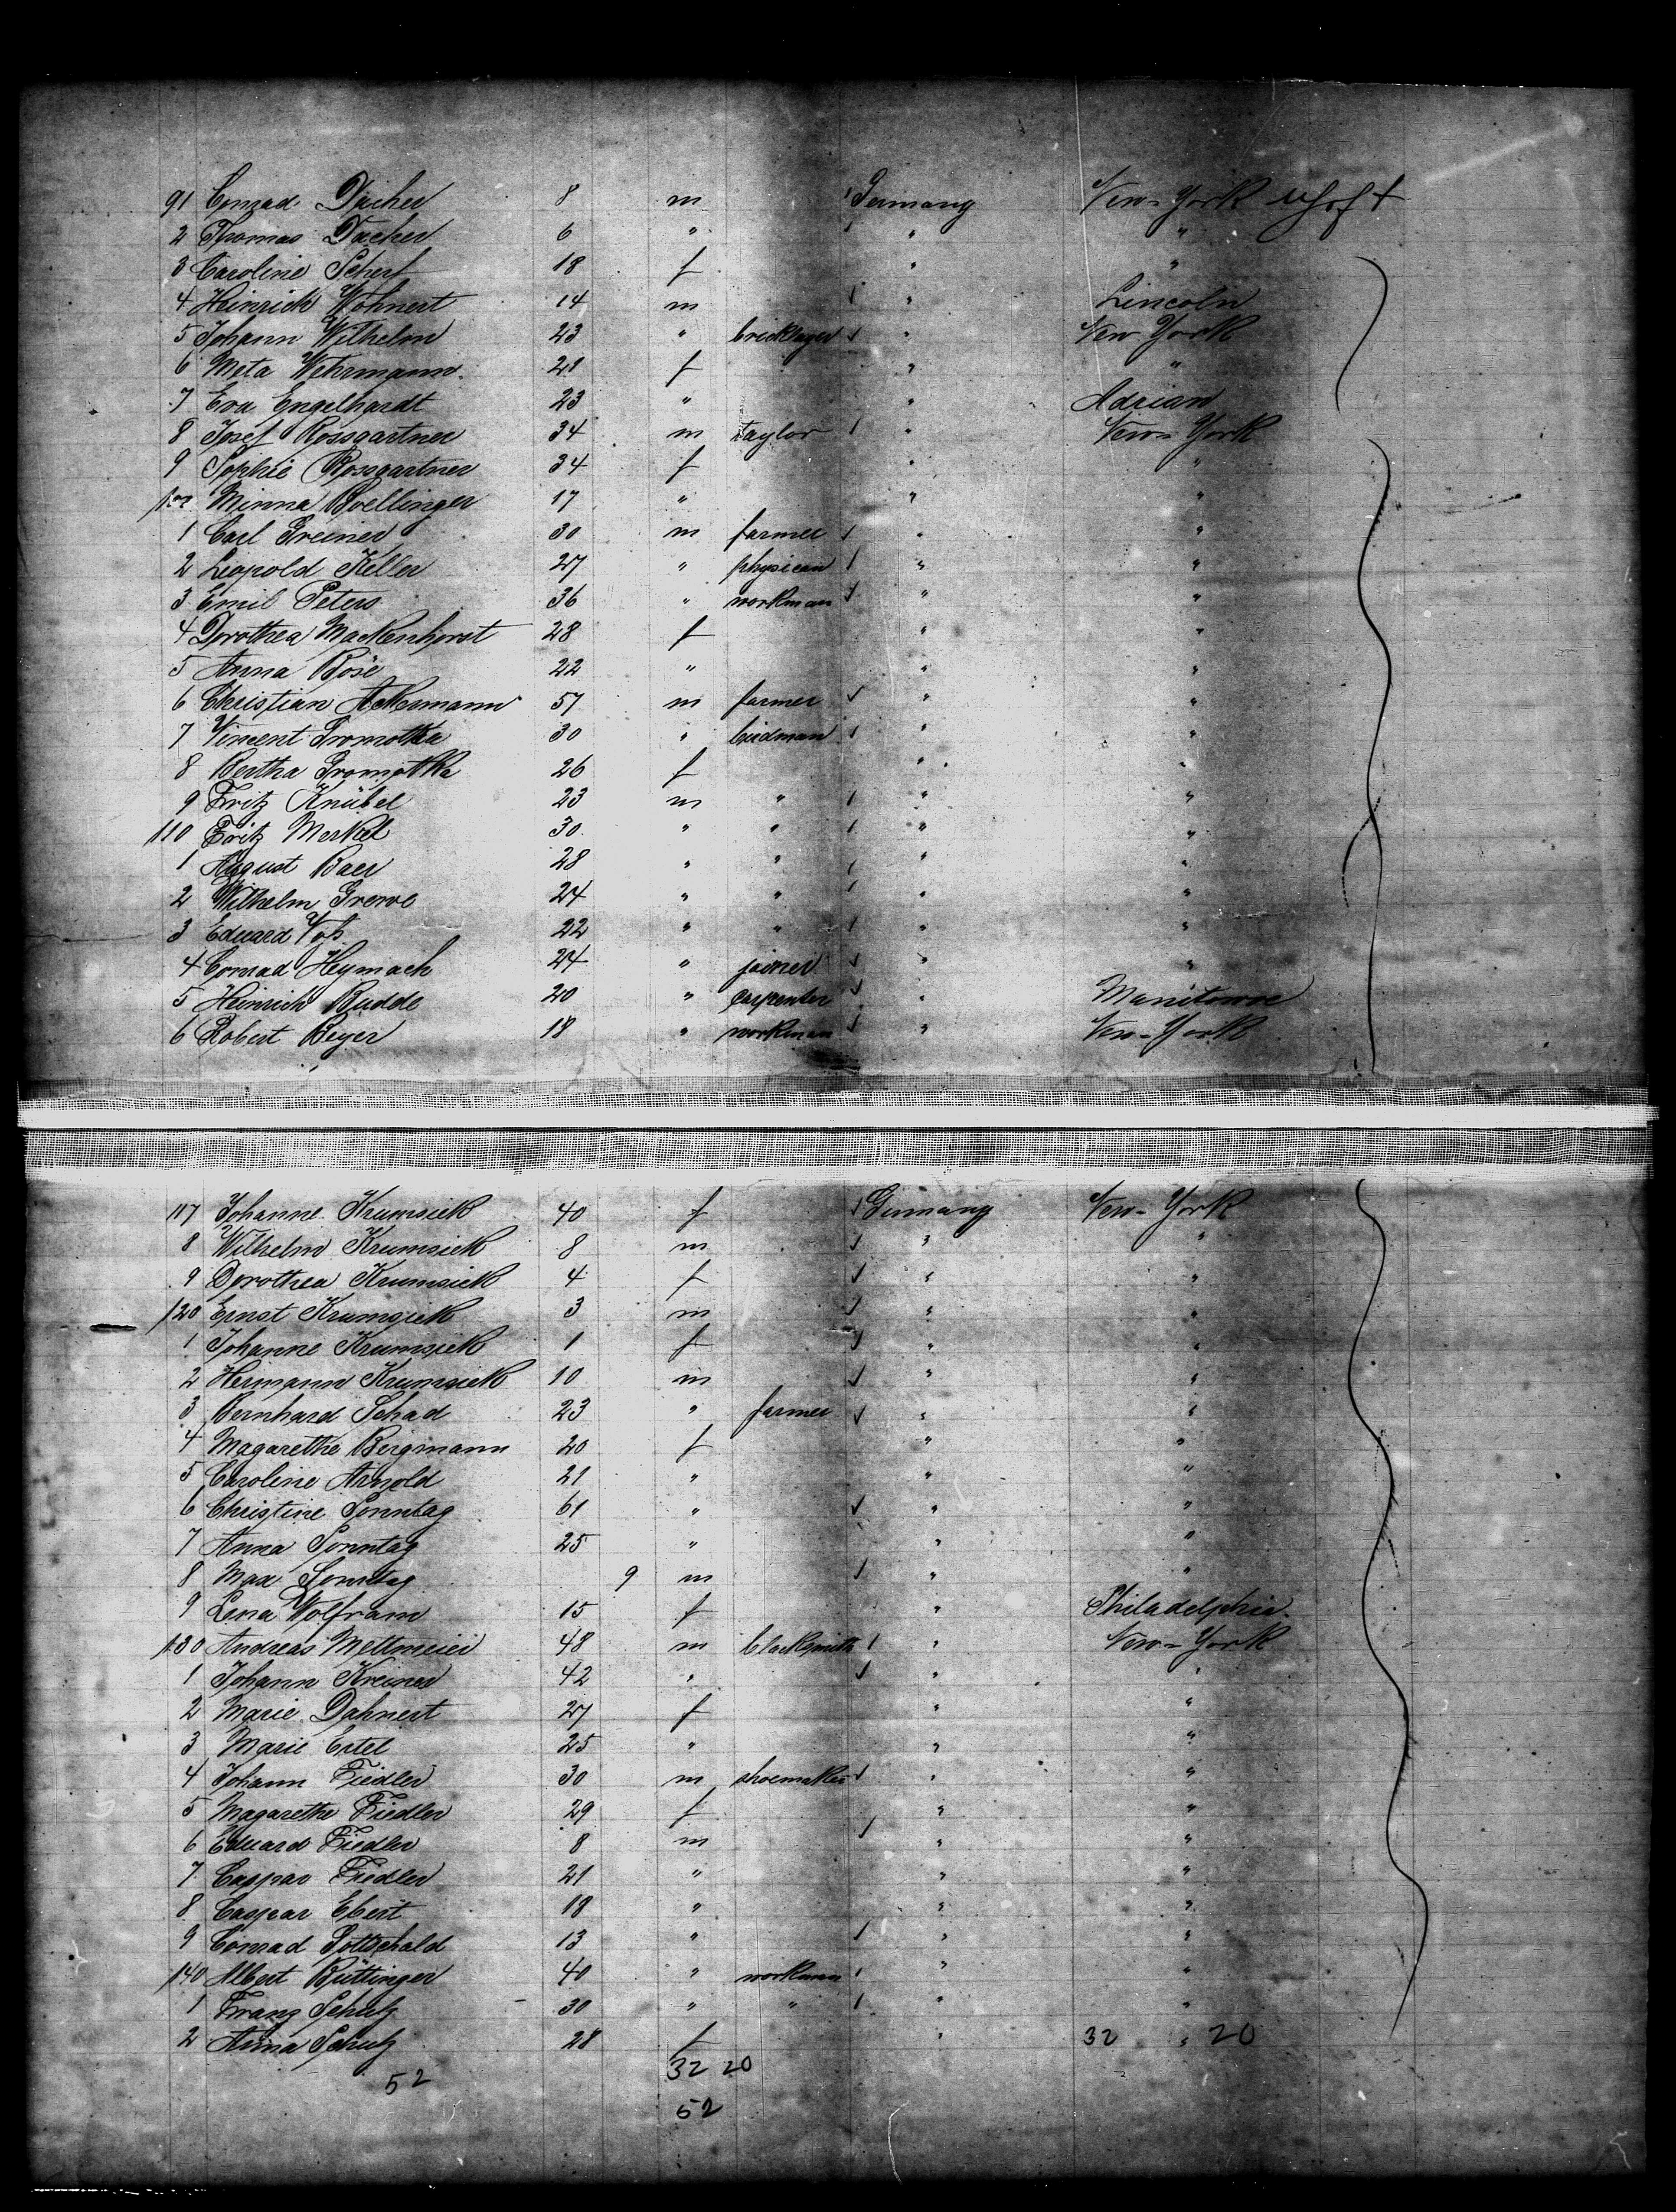 91 Conrad Dächer 8 m Germany New-York
2 Thomas Dächer 6 " " "
3 Caroline Scherf 18 f " "
4 Heinrich Wohnert 14 m " Lincoln
5 Johann Wilhelm 23 " bricklayer " New York
6 Meta Wehrmann 21 f " "
7 Eva Engelhardt 23 " " Adrian
8 Josef Rossgartner 34 m taylor " New-York
9 Sophie Rossgartner 34 f " "
100 Minna Boellinger 17 " " "
1 Carl Greiner 30 m farmer " "
2 Leopold Keller 27 " physican " "
3 Emil Peters 36 " workman " "
4 Dorothea Mackenhorst 28 f " "
5 Anna Böse 22 " " "
6 Christian Ackermann 57 m farmer " "
7 Vincent Gromotka 30 " " "
8 Bertha Gromotka 26 f " "
9 Fritz Knübel 23 m " " "
110 Fritz Merkel 30 " " " "
1 August Baer 28 " " " "
2 Wilhelm Grewe 24 " " " "
3 Eduard Voß 22 " " " "
4 Conrad Heymach 24 " joiner " "
5 Heinrich Budde 20 " carpenter " Manitowoc
6 Robert Beyer 18 " workman " New-York
117 Johanne Krumsiek 40 f Germany New-York
8 Wilhelm Krumsiek 8 m " "
9 Dorothea Krumsiek 4 f " "
120 Ernst Krumsiek 3 m " "
1 Johanne Krumsiek 1 f " "
2 Hermann Krumsiek 10 m " "
3 Bernhard Schad 23 " farmer " "
4 Magarethe Bergmann 20 f " "
5 Caroline Arnold 21 " " "
6 Christine Sonntag 61 " " "
7 Anna Sonntag 25 " " "
8 Max Sonntag 9 m " "
9 Lena Wolfram 15 f " Philadelphia
130 Andreas Mettmeier 48 m blacksmith " New-York
1 Johann Kreiner 42 " " "
2 Marie Dahnert 27 f " "
3 Marie Ertel 25 " " "
4 Johann Fiedler 30 m shoemaker " "
5 Magarethe Fiedler 29 f " "
6 Eduard Fiedler 8 m " "
7 Caspar Fiedler 21 " " "
8 Caspar Ebert 18 " " "
9 Conrad Gottschald 13 " " "
140 Albert Büttinger 40 " workman " "
1 Franz Schulz 30 " " " "
2 Anna Schulz 28 f " 32 " 20
52 32 20
52